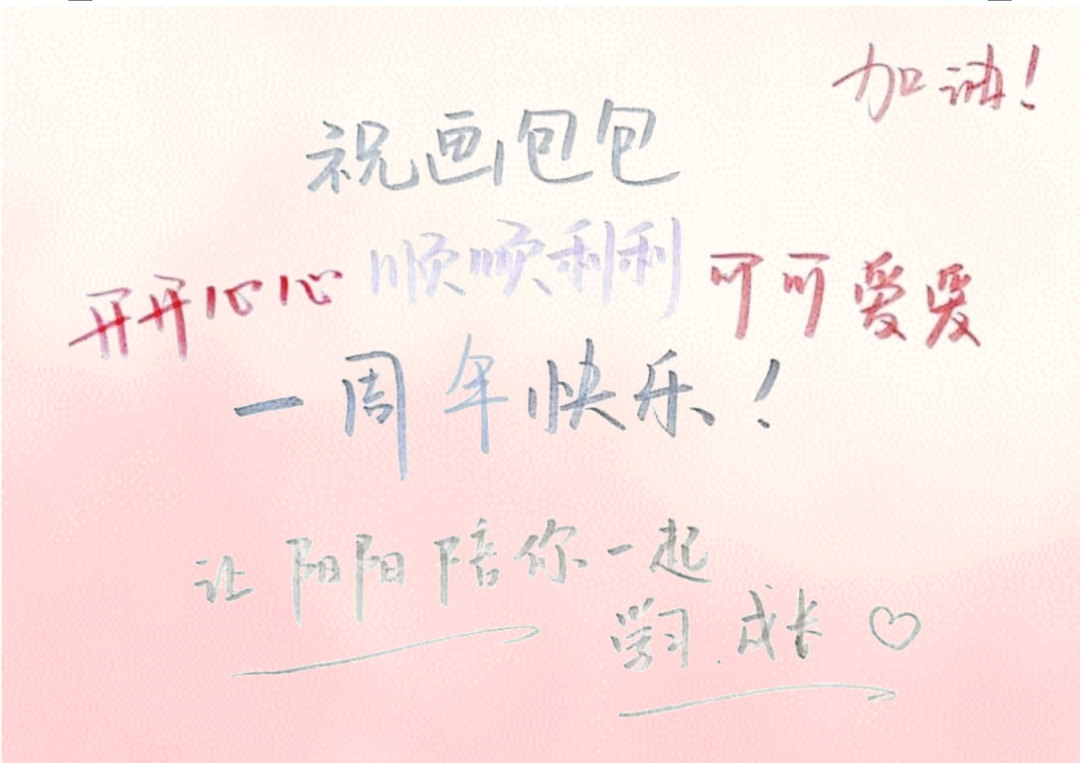 加油！
祝画包包
开开心心 顺顺利利 可可爱爱
一周年快乐！
让阳阳陪你一起
学习.成长♡